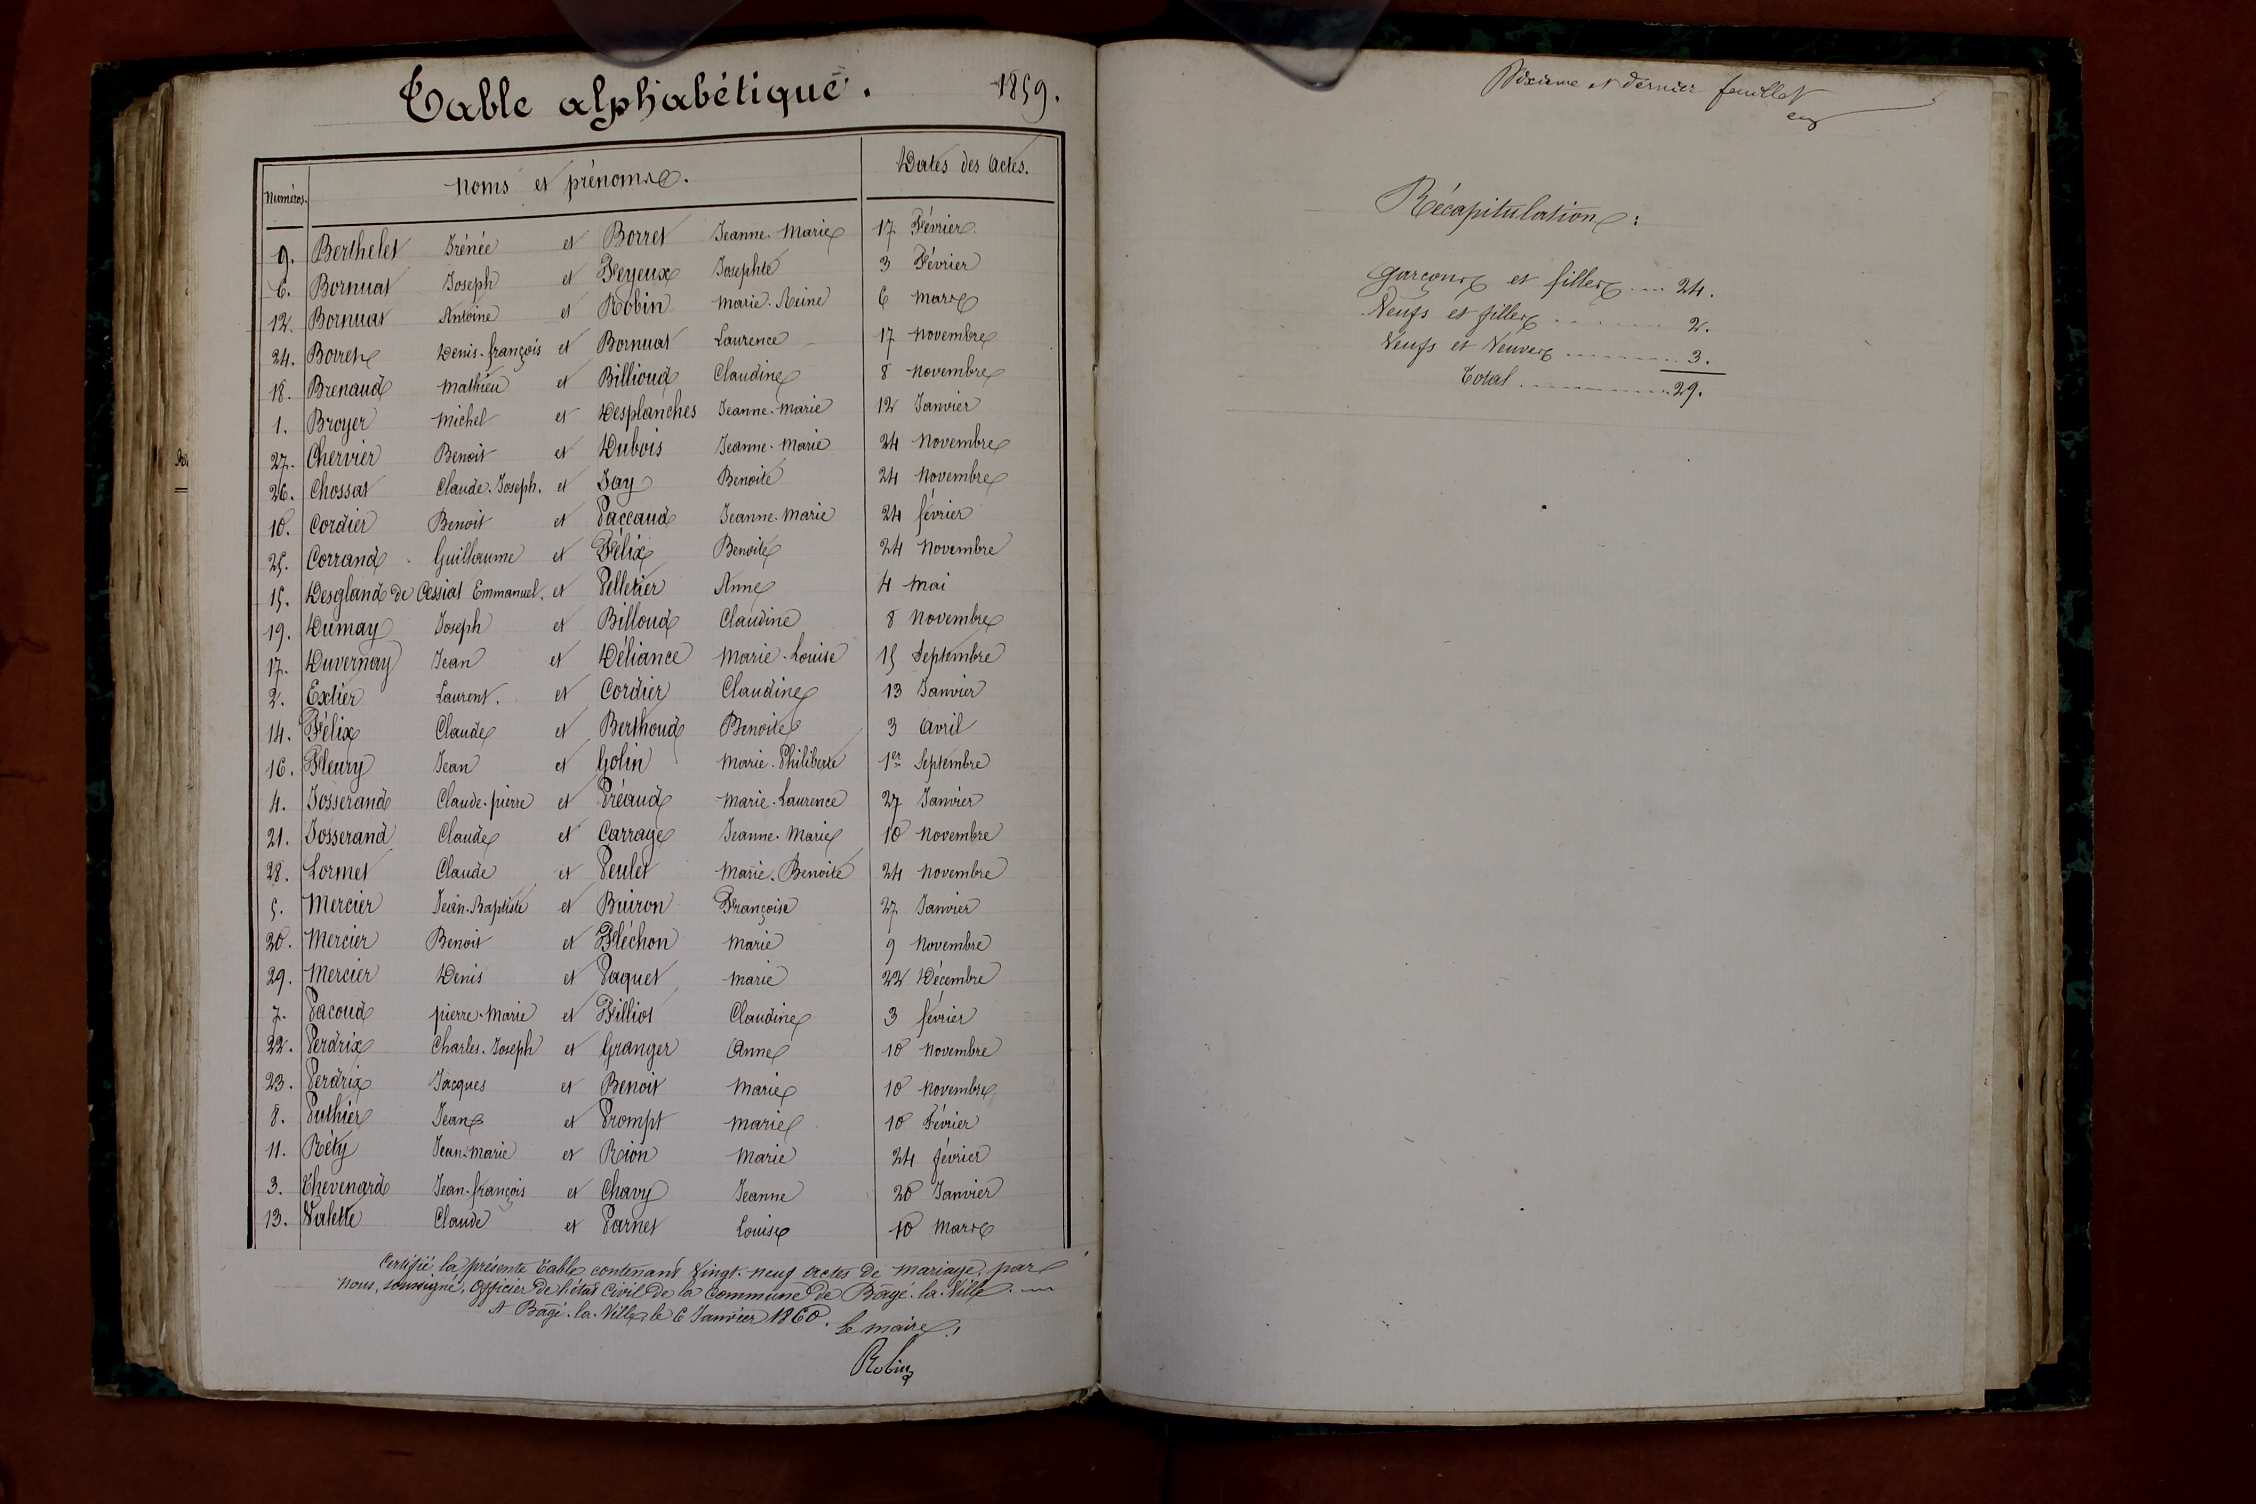 Table alphabétique. 1859.
Numéros. Noms et prénoms. Dates des Actes.
9. Berthelet Irénée et Borret Jeanne-Marie 17 Février
6. Bornuat Joseph et Feyeux Josephte 3 Février
12. Bornuat Antoine et Robin Marie-Reine 6 Mars
24. Borret Denis-françois et Bornuat Laurence 17 Novembre
18. Brenaud Mathieu et Billioud Claudine 8 Novembre
1. Broyer Michel et Desplanches Jeanne-Marie 12 Janvier
27. Chervier Benoit et Dubois Jeanne-Marie 24 Novembre
26. Chossat Claude-Joseph. et Jay Benoite 24 Novembre
10. Cordier Benoit et Paccaud Jeanne-Marie 24 février
25. Corrand Guillaume et Félix Benoite 24 Novembre
15. Desgland de Cessiat Emmanuel. et Pelletier Anne 4 Mai
19. Dumay Joseph et Billoud Claudine 8 Novembre
17. Duvernay Jean et Déliance Marie-Louise 15 Septembre
2. Extier Laurent. et Cordier Claudine 13 Janvier
14. Félix Claude et Berthoud Benoite 3 Avril
16. Fleury Jean et Golin Marie-Philiberte 1er Septembre
4. Josserand Claude-pierre et Préaud Marie-Laurence 27 Janvier
21. Josserand Claude et Carrage Jeanne-Marie 10 Novembre
28. Lormet Claude et Peulet Marie-Benoite 24 Novembre
5. Mercier Jean-Baptiste et Buiron Françoise 27 Janvier
20. Mercier Benoit et Fléchon Marie 9 Novembre
29. Mercier Denis et Paquet Marie 22 Décembre
7. Pacoud pierre-Marie et Filliot Claudine 3 février
22. Perdrix Charles-Joseph et Granger Anne 10 Novembre
23. Perdrix Jacques et Benoit Marie 10 Novembre
8. Puthier Jean et Prompt Marie 10 Février
11. Réty Jean-Marie et Rion Marie 24 février
3. Thevenard Jean-françois et Chavy Jeanne 20 Janvier
13. Valette Claude et Parnet Louise 10 Mars
Certifié la présente Table contenant Vingt-neuf actes de mariage, par
Nous, soussigné, Officier de l'état Civil de la Commune de Bâgé-la-Ville.
A Bâgé-la-Ville, le 6 Janvier 1860.
Le Maire,
Robin
Dixième et dernier feuillet
Récapitulation:
Garçons et filles .... 24.
Veufs et filles ........ 2.
Veufs et Veuves ......... 3.
Total .............. 29.